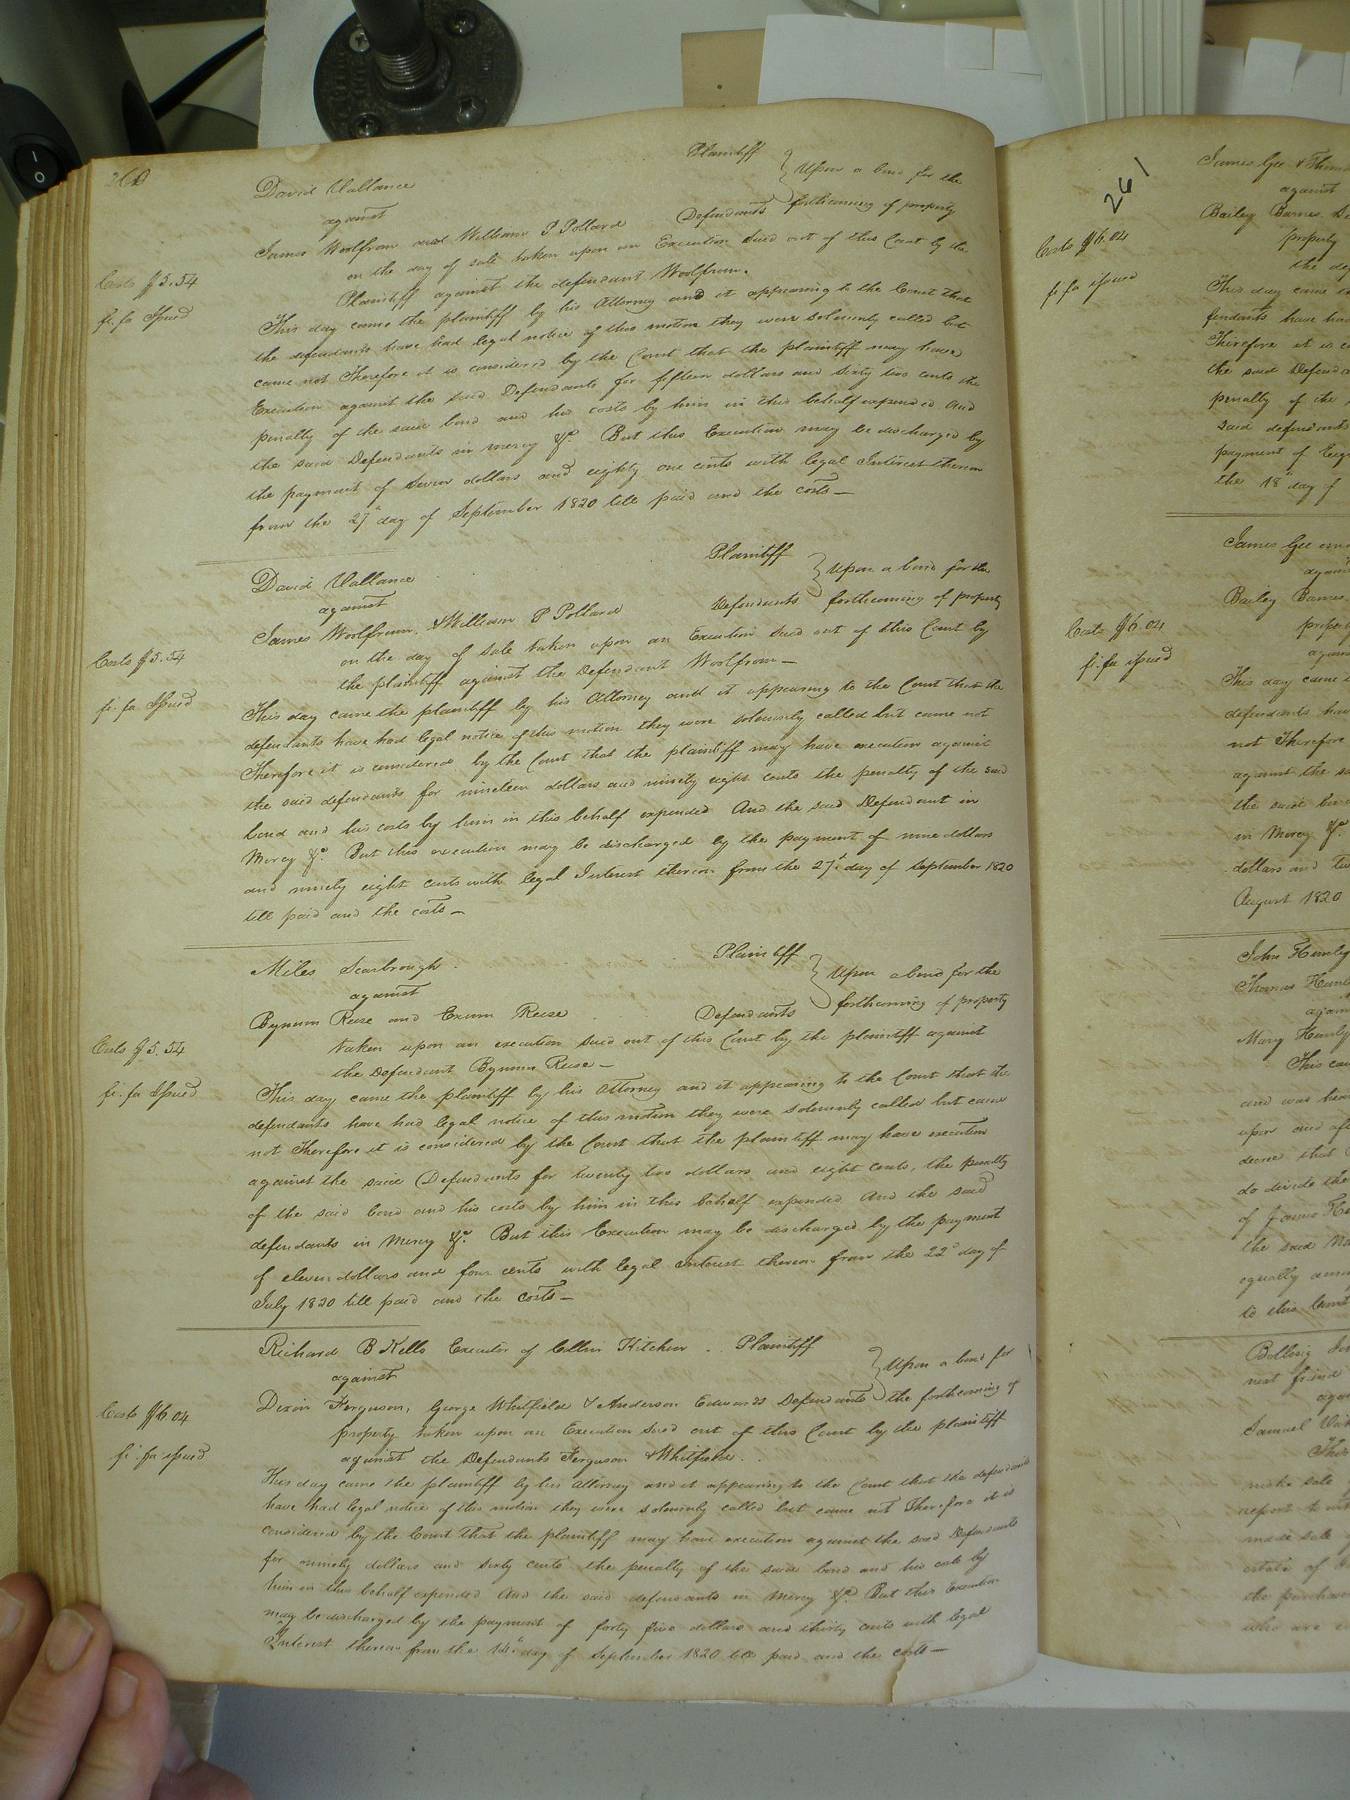 260
David Vallance Plaintiff
against
James Woolfram and William P Pollard Defendants } Upon a bond for the
forthcoming of property
on the day of sale taken upon an Execution Sued out of this Court by the
Plaintiff against the defendant Woolfram.
Costs $5.54
fi. fa Issued
This day came the plaintiff by his Attorney and it appearing to the Court that
the defendants have had legal notice of this motion they were solemnly called but
came not Therefore it is considered by the Court that the plaintiff may have
Execution against the said Defendants for fifteen dollars and sixty two cents the
penalty of the said bond and his costs by him in this behalf expended And
the said Defendants in mercy &c. But this Execution may be discharged by
the payment of Seven dollars and eighty one cents with legal Interest thereon
from the 27th day of September 1820 till paid and the costs—
David Vallance Plaintiff
against
James Woolfram & William P Pollard Defendants } Upon a bond for the
forthcoming of property
on the day of sale taken upon an Execution Sued out of this Court by
the plaintiff against the Defendant Woolfram—
Costs $5.54
fi. fa Issued
This day came the plaintiff by his Attorney and it appearing to the Court that the
defendants have had legal notice of this motion they were solemnly called but came not
Therefore it is considered by the Court that the plaintiff may have execution against
the said defendants for nineteen dollars and ninety eight cents the penalty of the said
bond and his costs by him in this behalf expended And the said Defendant in
Mercy &c. But this execution may be discharged by the payment of nine dollars
and ninety eight cents with legal Interest thereon from the 27th day of September 1820
till paid and the costs—
Miles Scarbrough Plaintiff
against
Bynum Reese and Exum Reese Defendants } Upon a bond for the
forthcoming of property
taken upon an execution Sued out of this Court by the plaintiff against
the Defendant Bynum Reese—
Costs $5.54
fi. fa Issued
This day came the plaintiff by his Attorney and it appearing to the Court that the
defendants have had legal notice of this motion they were solemnly called but came
not Therefore it is considered by the Court that the plaintiff may have execution
against the said Defendants for twenty two dollars and eight cents, the penalty
of the said bond and his costs by him in this behalf expended And the said
defendants in Mercy &c. But this Execution may be discharged by the payment
of eleven dollars and four cents with legal Interest thereon from the 22d day of
July 1820 till paid and the costs—
Richard B Kello Executor of Collin Kitchen Plaintiff
against
Dixon Ferguson, George Whitfield & Anderson Edwards Defendants } Upon a bond for
the forthcoming of
property taken upon an Execution Sued out of this Court by the plaintiff
against the Defendants Ferguson & Whitfield
Costs $6.04
fi. fa issued
This day came the plaintiff by his Attorney and it appearing to the Court that the defendants
have had legal notice of this motion they were solemnly called but came not Therefore it is
considered by the Court that the plaintiff may have execution against the said Defendants
for ninety dollars and sixty cents the penalty of the said bond and his costs by
him in this behalf expended And the said defendants in Mercy &c. But this Execution
may be discharged by the payment of forty five dollars and thirty cents with legal
Interest thereon from the 14th day of September 1820 till paid and the costs—
261
James Gee &
against
Bailey Barnes
Costs $6.04
fi. fa issued
property
This day came
fendants have had
Therefore it is
the said
penalty of the
said defendants
payment of
the 18th day of
James Gee
Bailey Barnes
Costs $6.04
fi. fa issued
This day came
defendants have
not Therefore
against the
the said
in Mercy &c.
dollars and
August 1820
John
Thomas
Mary
This
and was
upon
decree that
do divide the
of James
the said
equally
to this Court
Bolling
next friend
Samuel
This
make sale
report
made sale
estate of
the
who are